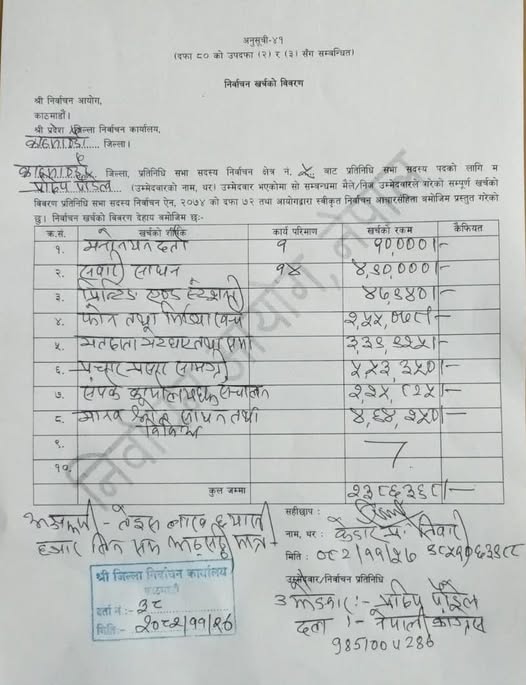 अनुसूची-४१
(दफा ८० को उपदफा (२) र (३) सँग सम्बन्धित)
निर्वाचन खर्चको विवरण
श्री निर्वाचन आयोग,
काठमाडौं।
श्री प्रदेश जिल्ला निर्वाचन कार्यालय,
काठमाडौं..... जिल्ला।
काठमाडौं जिल्ला, प्रतिनिधि सभा सदस्य निर्वाचन क्षेत्र नं. ५ बाट प्रतिनिधि सभा सदस्य पदको लागि म
प्रदिप पौडेल (उम्मेदवारको नाम, थर) उम्मेदवार भएकोमा सो सम्बन्धमा मैले/निज उम्मेदवारले गरेको सम्पूर्ण खर्चको
विवरण प्रतिनिधि सभा सदस्य निर्वाचन ऐन, २०७४ को दफा ७२ तथा आयोगद्वारा स्वीकृत निर्वाचन आचारसंहिता बमोजिम प्रस्तुत गरेको
छु। निर्वाचन खर्चको विवरण देहाय बमोजिम छः-
क्र.सं. खर्चको शीर्षक कार्य परिमाण खर्चको रकम कैफियत
१. मनोनयन दर्ता १ १०,०००।-
२. सवारी साधन १४ ४,९०,०००।-
३. प्रिन्टिङ एण्ड स्टेशनरी
४. फोन तथा मिडिया खर्च २,५५,०७८।-
५.
६. प्रचार प्रसार सामग्री ५,५३,३५०।-
७. सम्पर्क कार्यालय संचालन २,२५,८२५।-
८. ४,६४,२५०।-
९.
१०.
कुल जम्मा २३८६३६८।-
अक्षरूपी - तेइस लाख छयासी
हजार तिन सय अठसट्ठी मात्र
सहीछाप :
नाम, थर : केदार प्र. तिवारी
मिति : ०८२/११/२७
उम्मेदवार/निर्वाचन प्रतिनिधि
उम्मेदवार :- प्रदिप पौडेल
दल :- नेपाली काँग्रेस
9851004286
श्री जिल्ला निर्वाचन कार्यालय
काठमाडौं
दर्ता नं :- ३८
मिति:- २०८२/११/२७
निर्वाचन आयोग, नेपाल